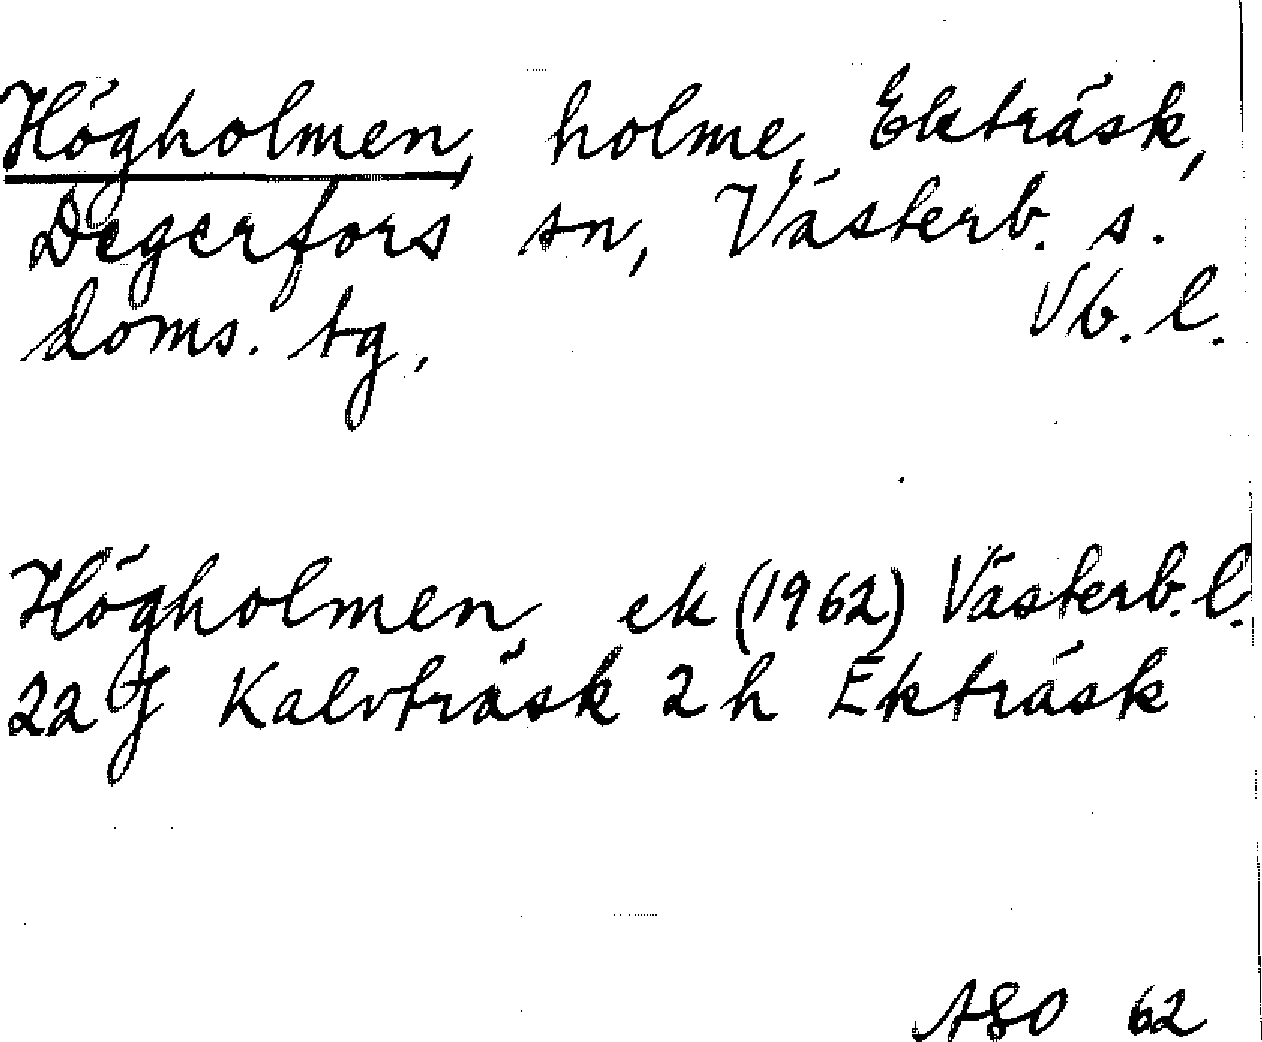 Högholmen, holme, Ekträsk,
Degerfors sn, Västerb. s.
doms. tg, Vb. l.
Högholmen, ek (1962) Västerb. l.
22 J Kalvträsk 2 h Ekträsk
ASO 62